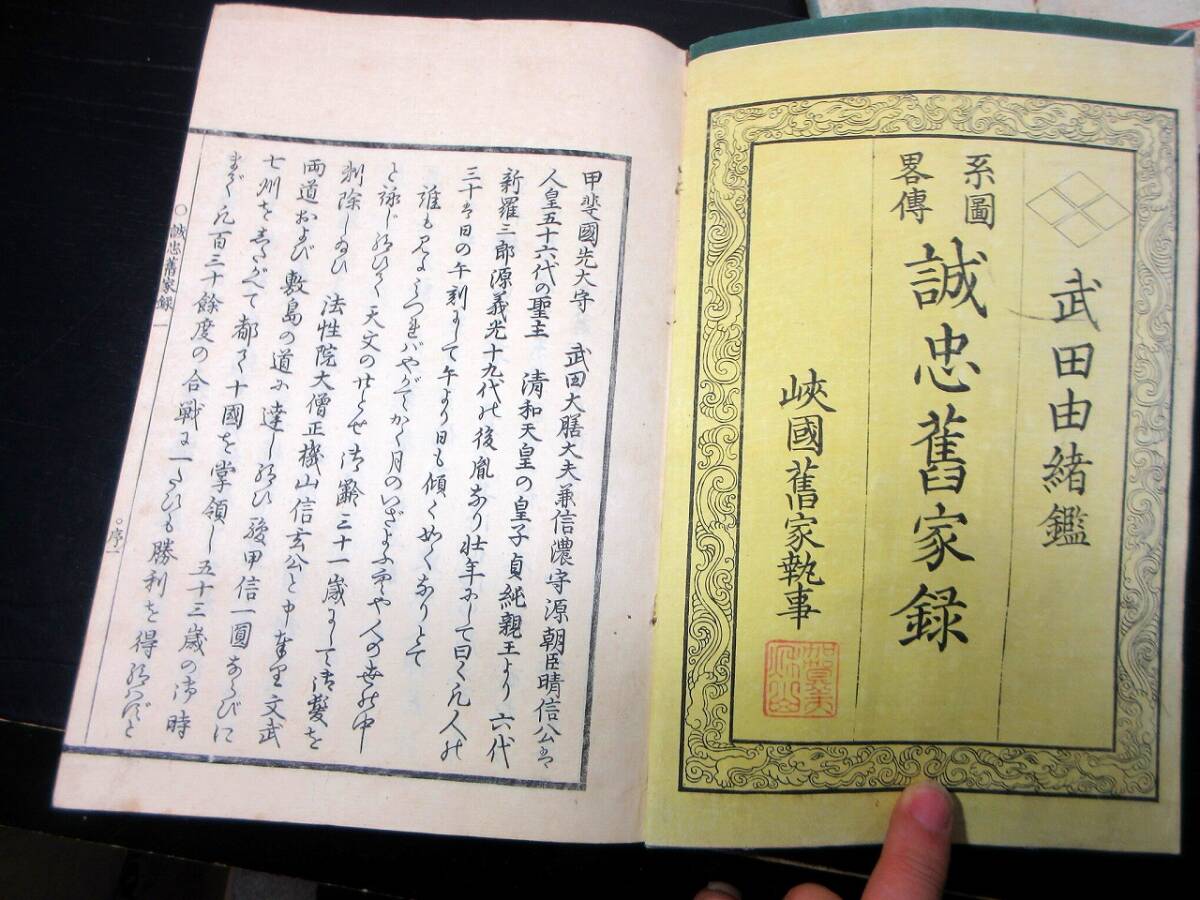 武田由緒鑑
系圖
畧傳
誠忠舊家録
峽國舊家執事
甲斐國先大守 武田大膳大夫兼信濃守源朝臣晴信公ハ
人皇五十六代の聖主 清和天皇の皇子貞純親王より六代
新羅三郎源義光十九代の後胤なり壮年にして曰く凡人の
三十ハ日の午刻にして午より日も傾く如くなりとて
誰も見よみつればやがてかく月のいざよふ空や人の世の中
と詠じ給ひて天文の
剃除し給ひ 法性院大僧正機山信玄公と申奉里文武
両道および敷島の道に達し給ひ駿甲信一圓ならびに
七州を志たがへて都て十國を掌領し五十三歳の御時
まで凡百三十餘度の合戦に一たびも勝利を得給はずと
誠忠舊家録
序一